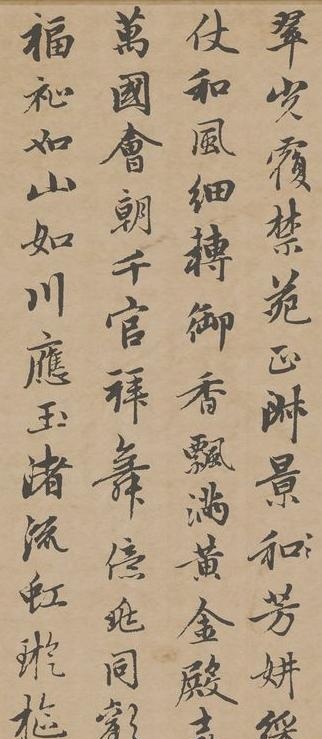 翠光覆禁苑正淑景和芳妍綵
仗和風細轉御香飄滿黃金殿喜
萬國會朝千官拜舞億兆同歡
福祉如山如川應玉渚流虹璇樞